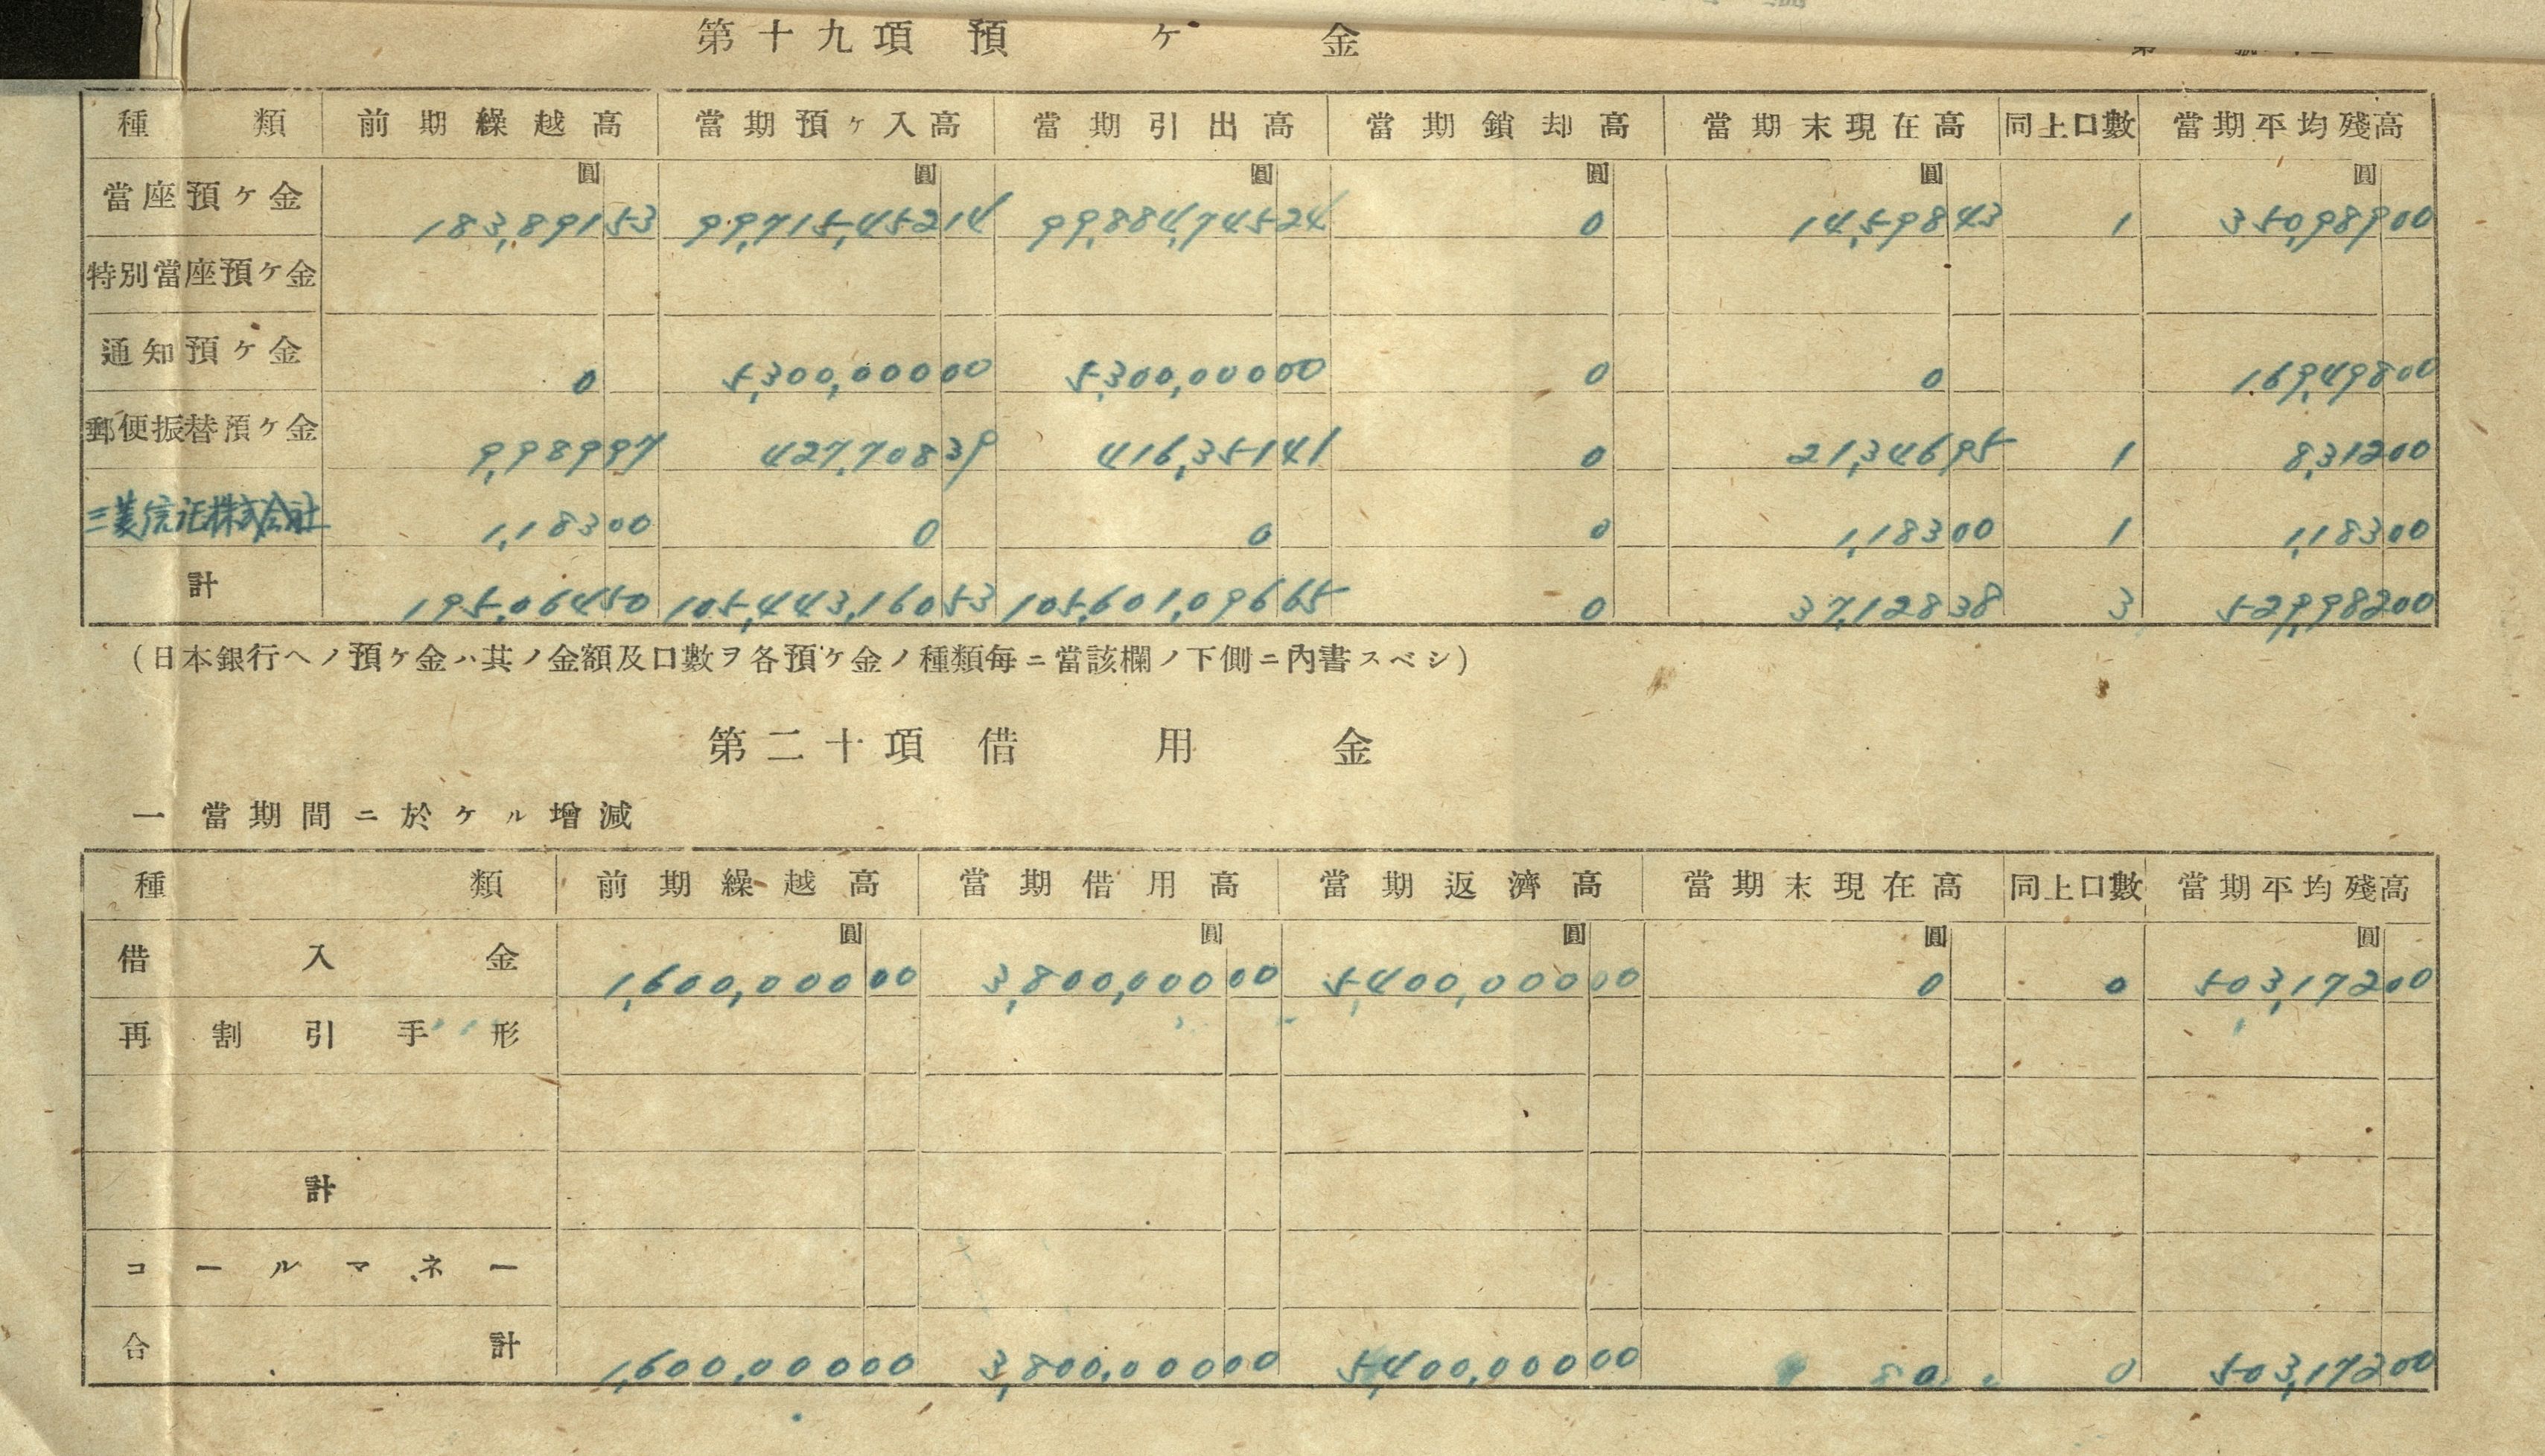 第十九項 預ケ金
種類 前期繰越高 當期預ケ入高 當期引出高 當期鎖却高 當期末現在高 同上口數 當期平均殘高
圓 圓 圓 圓 圓 圓
當座預ケ金 183,891 53 99,715,452 14 99,884,745 24 0 14,598 43 1 350,989 00
特別當座預ケ金
通知預ケ金 0 5,300,000 00 5,300,000 00 0 0 169,498 00
郵便振替預ケ金 9,989 97 427,708 39 416,351 41 0 21,346 95 1 8,312 00
三菱信託株式会社 1,183 00 0 0 0 1,183 00 1 1,183 00
計 195,064 50 105,443,160 53 105,601,096 65 0 37,128 38 3 529,982 00
(日本銀行ヘノ預ケ金ハ其ノ金額及口數ヲ各預ケ金ノ種類每ニ當該欄ノ下側ニ內書スベシ)
第二十項 借用金
一 當期間ニ於ケル增減
種類 前期繰越高 當期借用高 當期返濟高 當期末現在高 同上口數 當期平均殘高
圓 圓 圓 圓 圓
借入金 1,600,000 00 3,800,000 00 5,400,000 00 0 0 503,172 00
再割引手形
計
コールマネー
合計 1,600,000 00 3,800,000 00 5,400,000 00 0 0 503,172 00